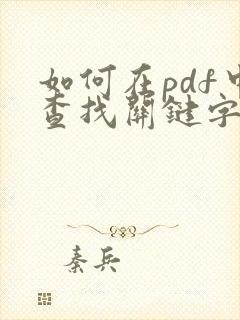 如何在pdf中
查找關鍵字
秦兵